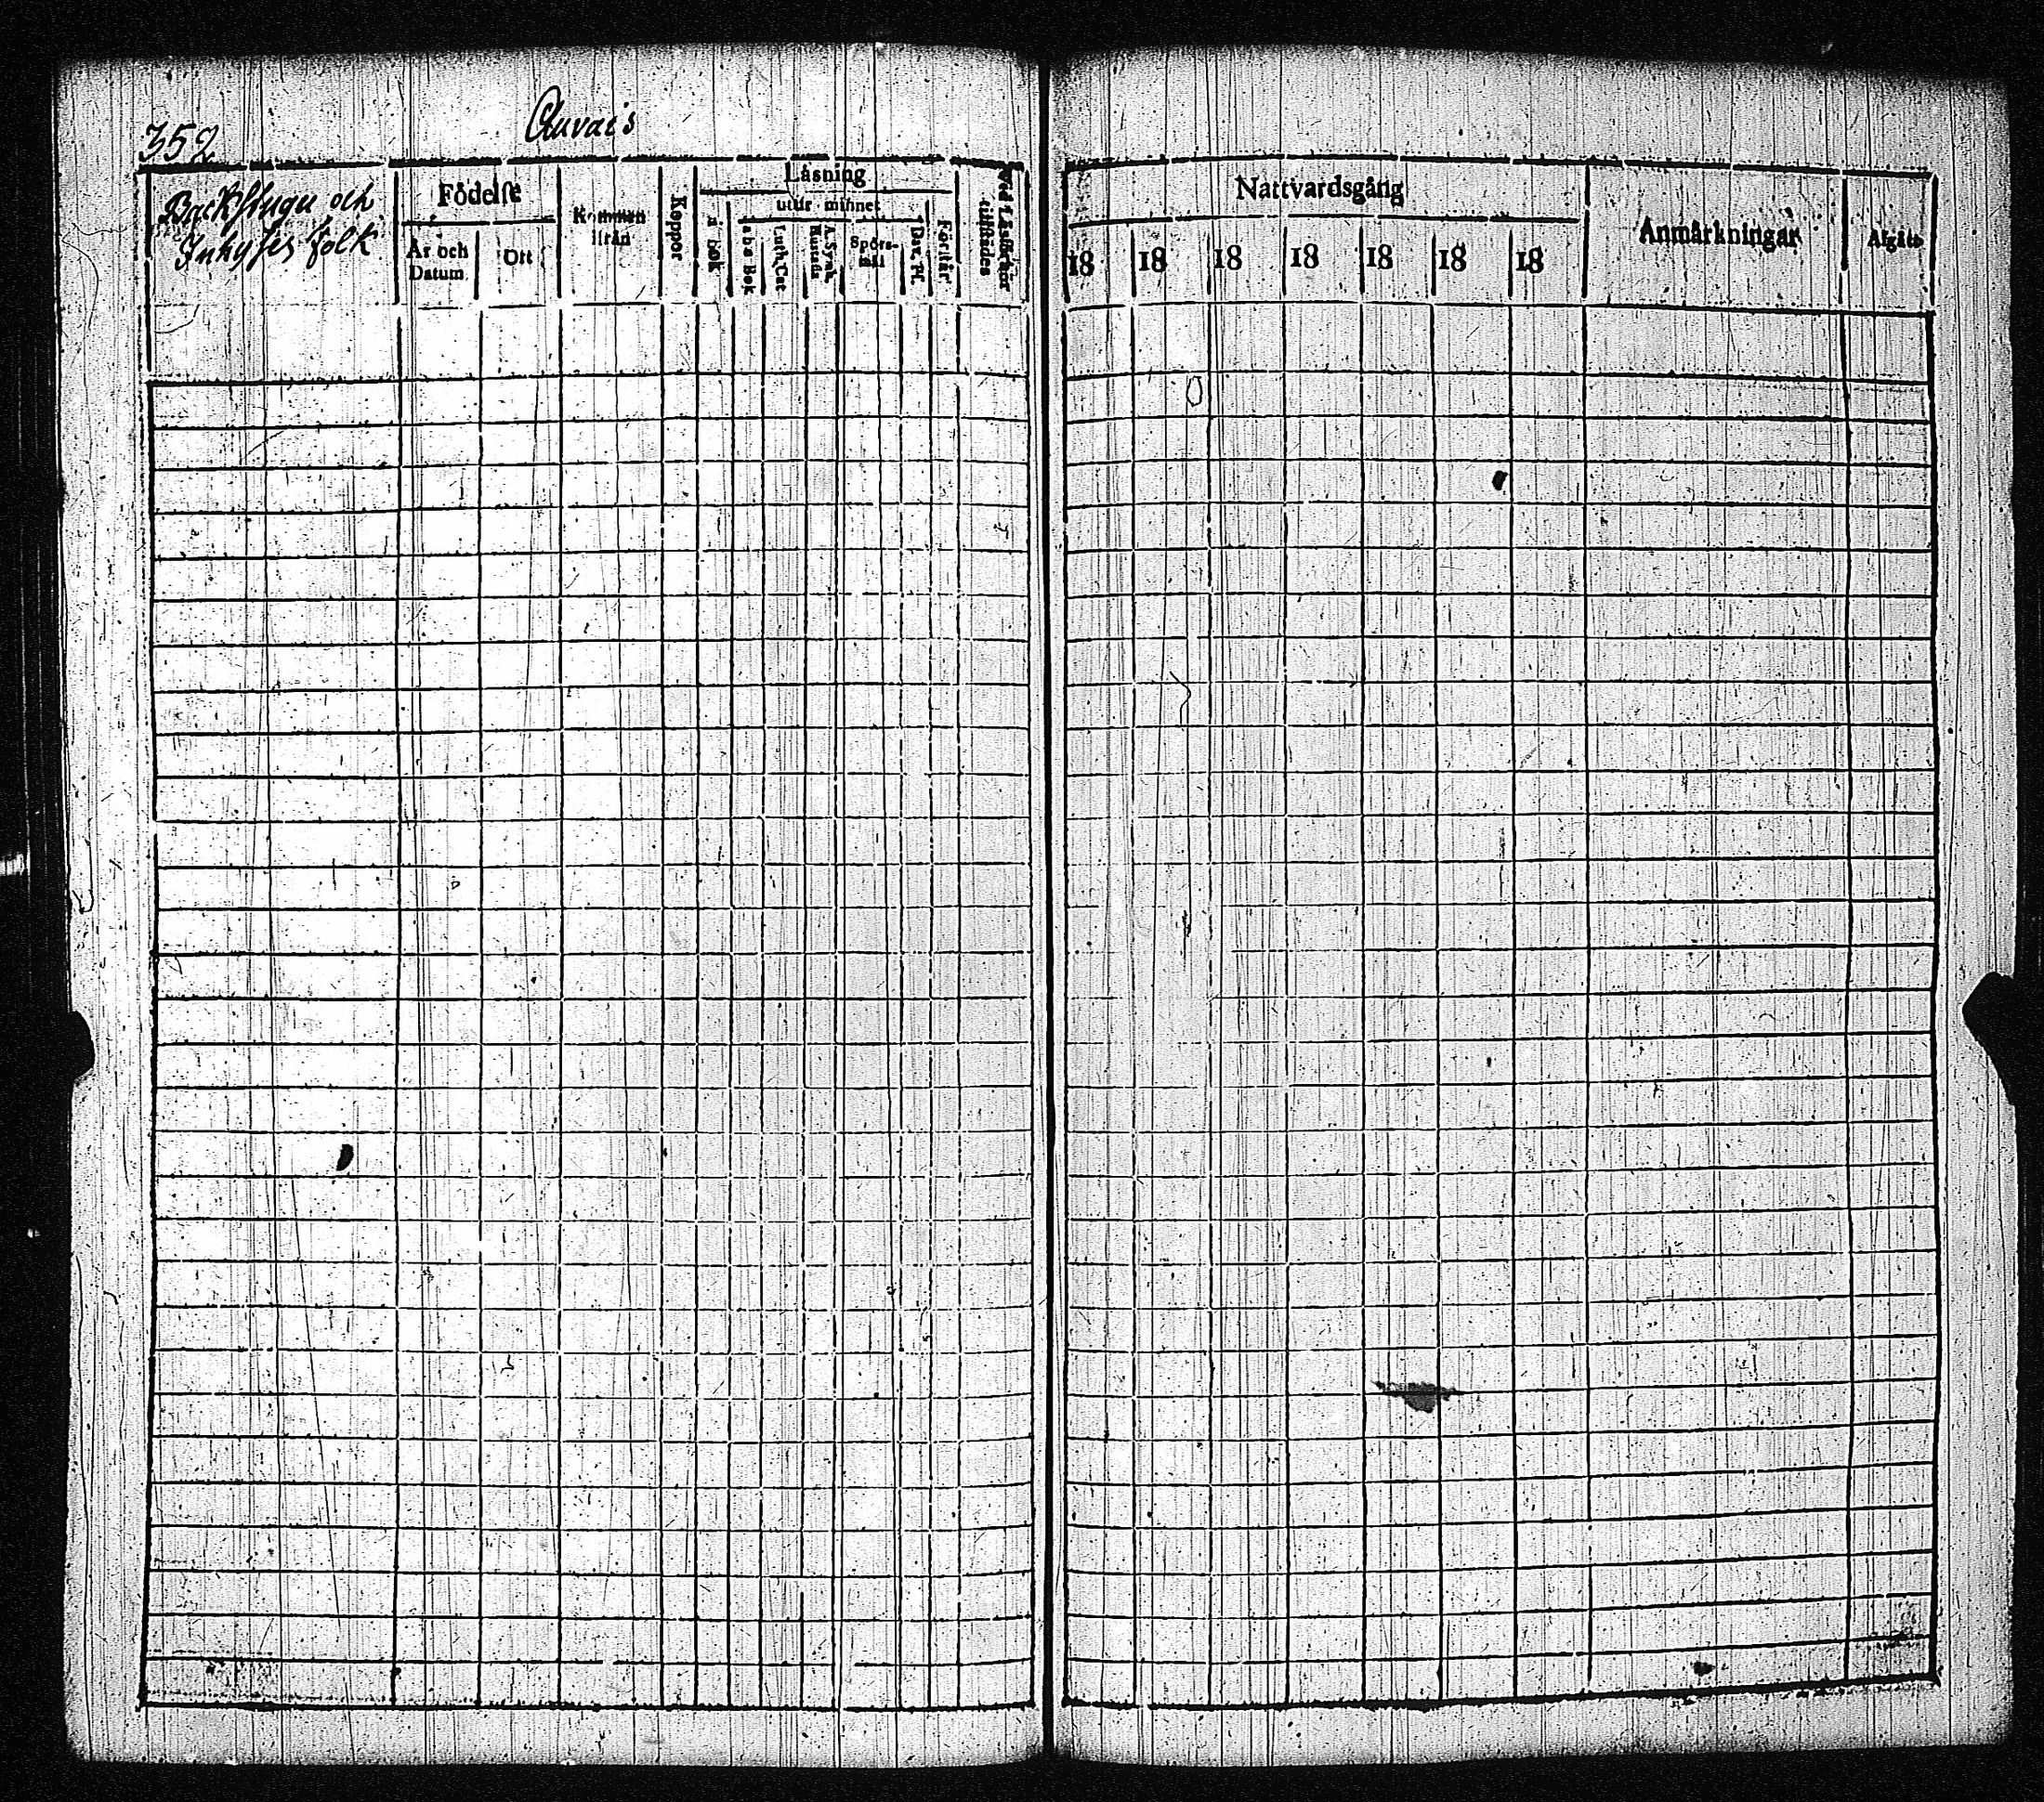 352
Auvais
Backstugu och
Inhyses folk
Födelse
År och
Datum
Ort
Kommen
ifrån
Koppor
Läsning
i bok
utur minnet
abc Bok
Luth. Cat
A. Symb.
Hustafla
Spörs-
mål
Dav. Ps.
Förstår
Vid Läsförhör
tillstädes
Nattvardsgång
18 18 18 18 18 18 18
Anmärkningar
Afgått